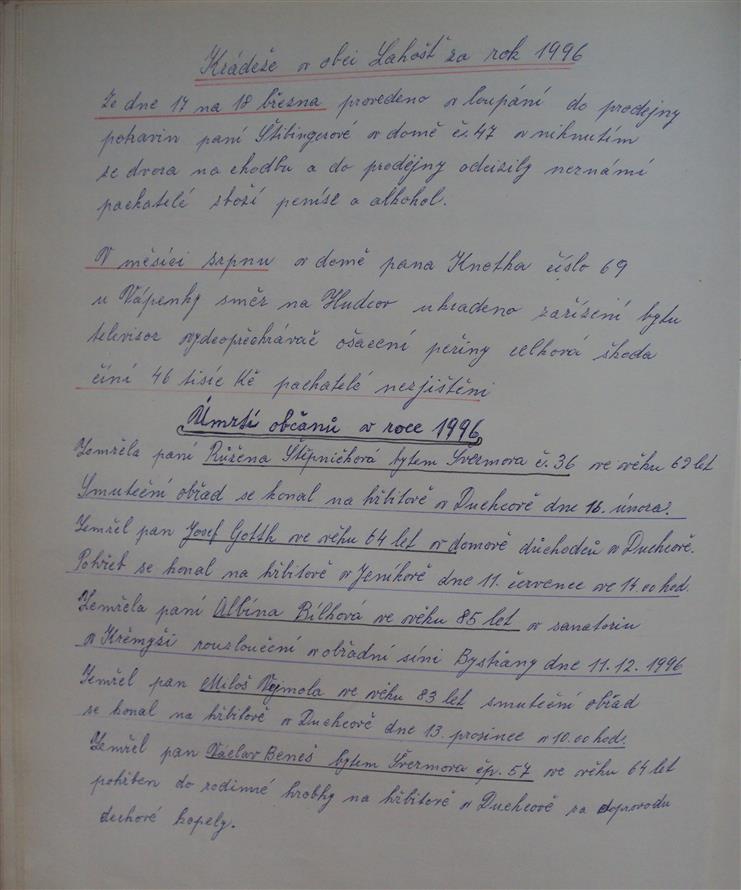 Krádeže v obci Lahošť za rok 1996
Ze dne 17 na 18 března provedeno vloupání do prodejny
potravin paní Štibingerové v domě č. 47 vniknutím
ze dvora na chodbu a do prodejny odcizily neznámí
pachatelé zboží peníse a alkohol.
V měsíci srpnu v domě pana Knetha číslo 69
u Vápenky směr na Hudcov ukradeno zařízení bytu
televisor vydeopřehrávač ošacení peřiny celková škoda
činí 46 tisíc Kč pachatelé nezjištěni
Úmrtí občanů v roce 1996
Zemřela paní Růžena Štěpničková bytem Švermova č. 36 ve věku 69 let
Smuteční obřad se konal na hřbitově v Duchcově dne 16. února.
Zemřel pan Josef Gotth ve věku 64 let v domově důchodců v Duchcově.
Pohřeb se konal na hřbitově v Jeníkově dne 11. července ve 14.00 hod.
Zemřela paní Albína Bílková ve věku 85 let v sanatoriu
v Krěmyži rouzloučení v obřadní síni Bystřany dne 11.12.1996
Zemřel pan Miloš Vejmola ve věku 83 let smuteční obřad
se konal na hřbitově v Duchcově dne 13. prosince v 10.00 hod.
Zemřel pan Václav Beneš bytem Švermova čp. 57 ve věku 64 let
pohřben do rodinné hrobky na hřbitově v Duchcově za doprovodu
dechové kapely.